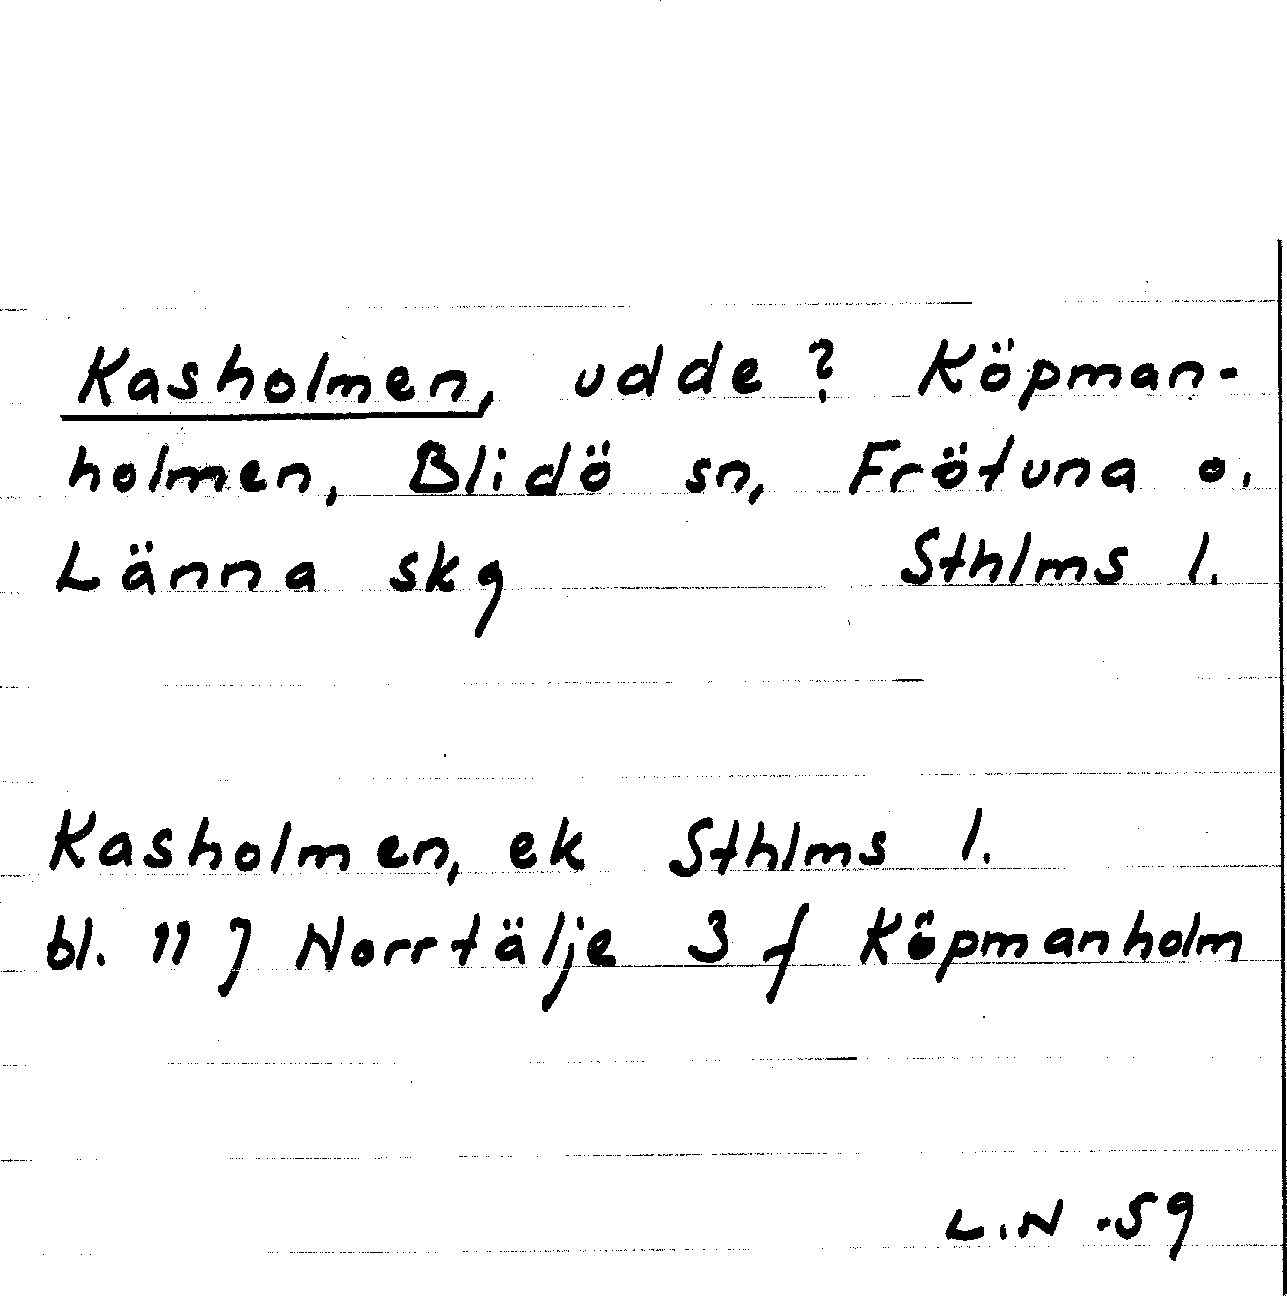 Kasholmen, udde? Köpman-
holmen, Blidö sn, Frötuna o.
Länna skg Sthlms l.
Kasholmen, ek Sthlms l.
bl. 11 J Norrtälje 3 f Köpmanholm
L.N -59